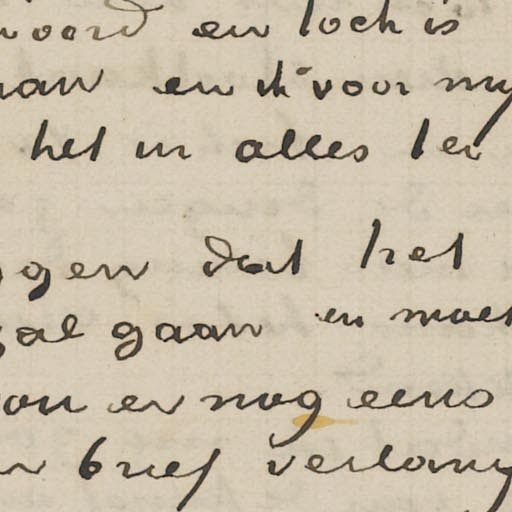 woord en toch is
aan en ik voor my
het in alles ter
ggen dat het
zal gaan en moet
ou er nog eens
n brief verlang